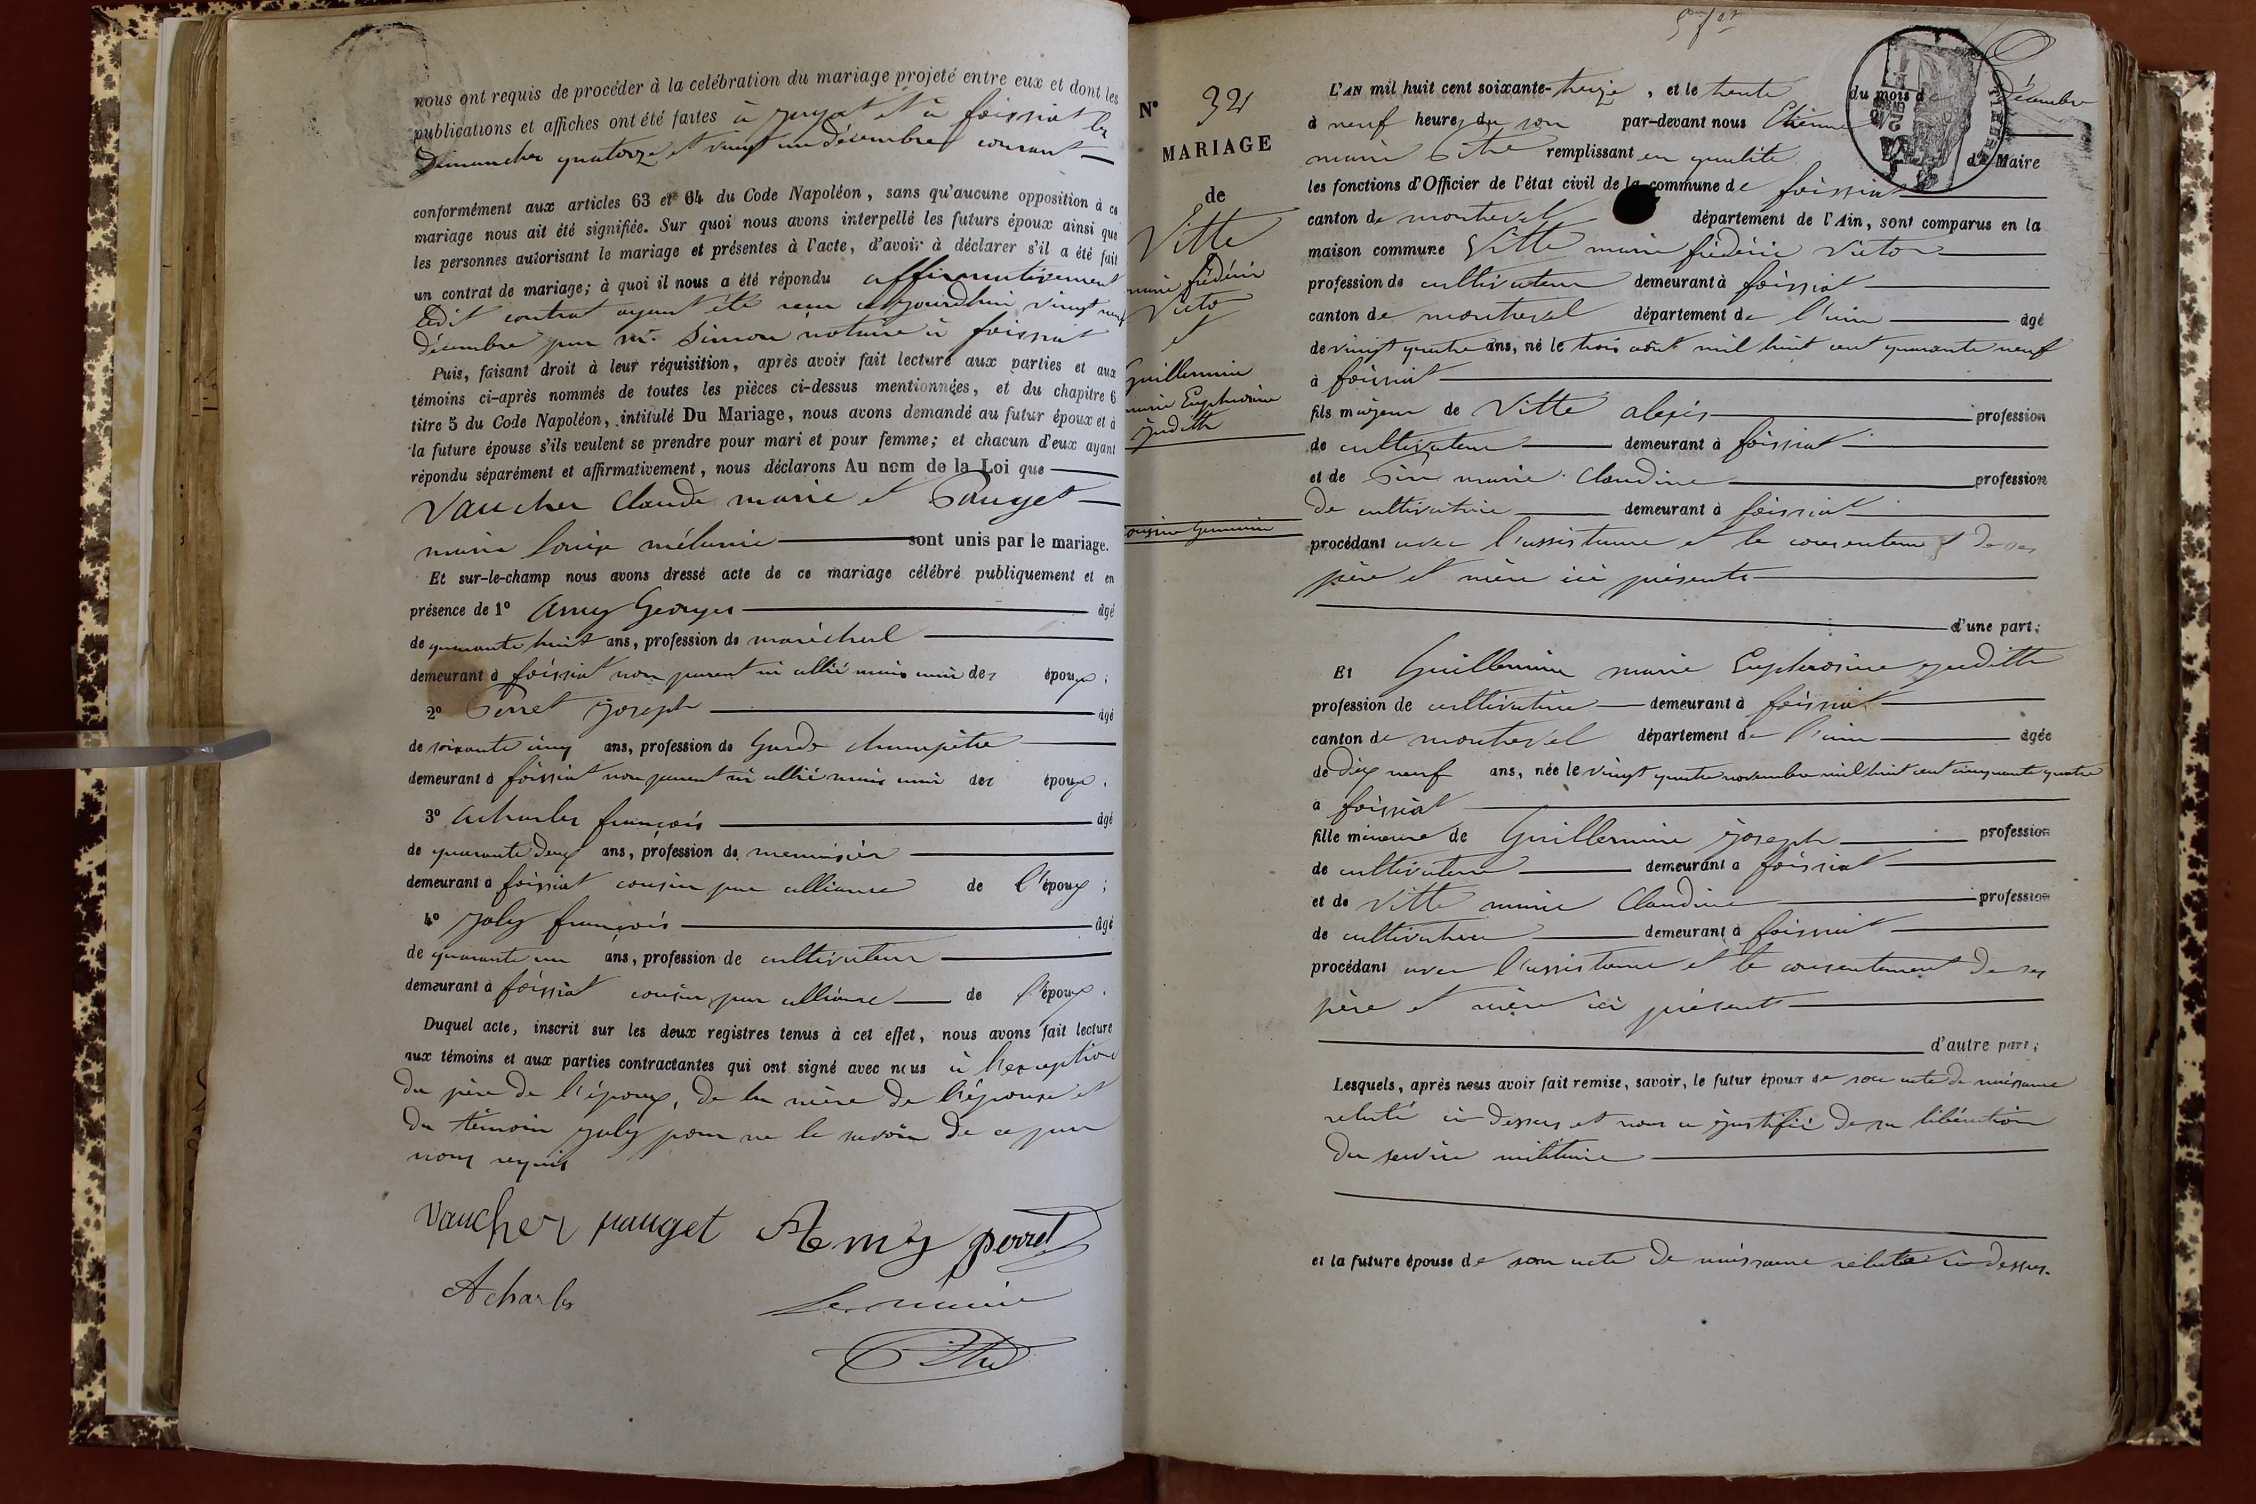 nous ont requis de procéder à la celébration du mariage projeté entre eux et dont les
publications et affiches ont été faites à jayat et à foissiat les
Dimanches quatorze et vingt un décembre courant
conformément aux articles 63 et 64 du Code Napoléon, sans qu'aucune opposition à ce
mariage nous ait été signifiée. Sur quoi nous avons interpellé les futurs époux ainsi que
les personnes autorisant le mariage et présentes à l'acte, d'avoir à déclarer s'il a été fait
un contrat de mariage; à quoi il nous a été répondu affirmativement
Ledit contrat ayant été reçu aujourdhui vingt neuf
décembre par me Simon notaire à foissiat
Puis, faisant droit à leur réquisition, après avoir fait lecture aux parties et aux
témoins ci-après nommés de toutes les pièces ci-dessus mentionnées, et du chapitre 6
titre 5 du Code Napoléon, intitulé Du Mariage, nous avons demandé au futur époux et à
la future épouse s'ils veulent se prendre pour mari et pour femme; et chacun d'eux ayant
répondu séparément et affirmativement, nous déclarons Au nom de la Loi que
Vaucher Claude marie et Pauget
marie louise mélanie sont unis par le mariage.
Et sur-le-champ nous avons dressé acte de ce mariage célébré publiquement et en
présence de 1° Amy Georges âgé
de quarante huit ans, profession de maréchal
demeurant à foissiat non parent ni allié mais ami des époux;
2° Perret joseph âgé
de soixante cinq ans, profession de Garde champêtre
demeurant à foissiat non parent ni allié mais ami des époux;
3° Acharles françois âgé
de quarante deux ans, profession de menuisier
demeurant à foissiat cousin par alliance de l'époux;
4° joly françois âgé
de quarante un ans, profession de cultivateur
demeurant à foissiat cousin par alliance de l'époux.
Duquel acte, inscrit sur les deux registres tenus à cet effet, nous avons fait lecture
aux témoins et aux parties contractantes qui ont signé avec nous à l'exception
du père de l'époux, de la mère de l'épouse et
du témoin joly pour ne le savoir de ce par
nous requis
Vaucher pauget Amy perret
Acharles Le maire
Pitre
N° 32
MARIAGE
de
Vitte
marie frédéric
Victor
et
Guillermin
marie Euphrosine
judith
cousins Germains
L'AN mil huit cent soixante-treize, et le trente du mois de Décembre
à neuf heures du soir par-devant nous Etienne
marie Pitre remplissant en qualité de Maire
les fonctions d'Officier de l'état civil de la commune de foissiat
canton de montrevel département de l'Ain, sont comparus en la
maison commune Vitte marie frédéric Victor
profession de cultivateur demeurant à foissiat
canton de montrevel département de l'ain âgé
de vingt quatre ans, né le trois août mil huit cent quarante neuf
à foissiat
fils majeur de Vitte alexis profession
de cultivateur demeurant à foissiat
et de Pin marie Claudine profession
de cultivatrice demeurant à foissiat
procédant avec l'assistance et le consentement de ses
père et mère ici présents
d'une part;
Et Guillermin marie Euphrosine judith
profession de cultivatrice demeurant à foissiat
canton de montrevel département de l'ain âgée
de dix neuf ans, née le vingt quatre novembre mil huit cent cinquante quatre
à foissiat
fille mineure de Guillermin joseph profession
de cultivateur demeurant à foissiat
et de Vitte marie Claudine profession
de cultivatrice demeurant à foissiat
procédant avec l'assistance et le consentement de ses
père et mère ici présents
d'autre part;
Lesquels, après nous avoir fait remise, savoir, le futur époux de son acte de naissance
relaté ci dessus et nous a justifié de sa libération
du service militaire
et la future épouse de son acte de naissance relaté ci dessus.